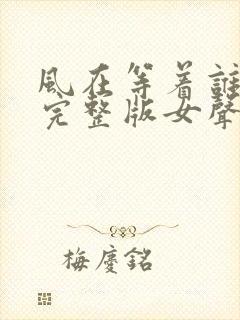 風在等着誰
完整版女聲
梅慶銘